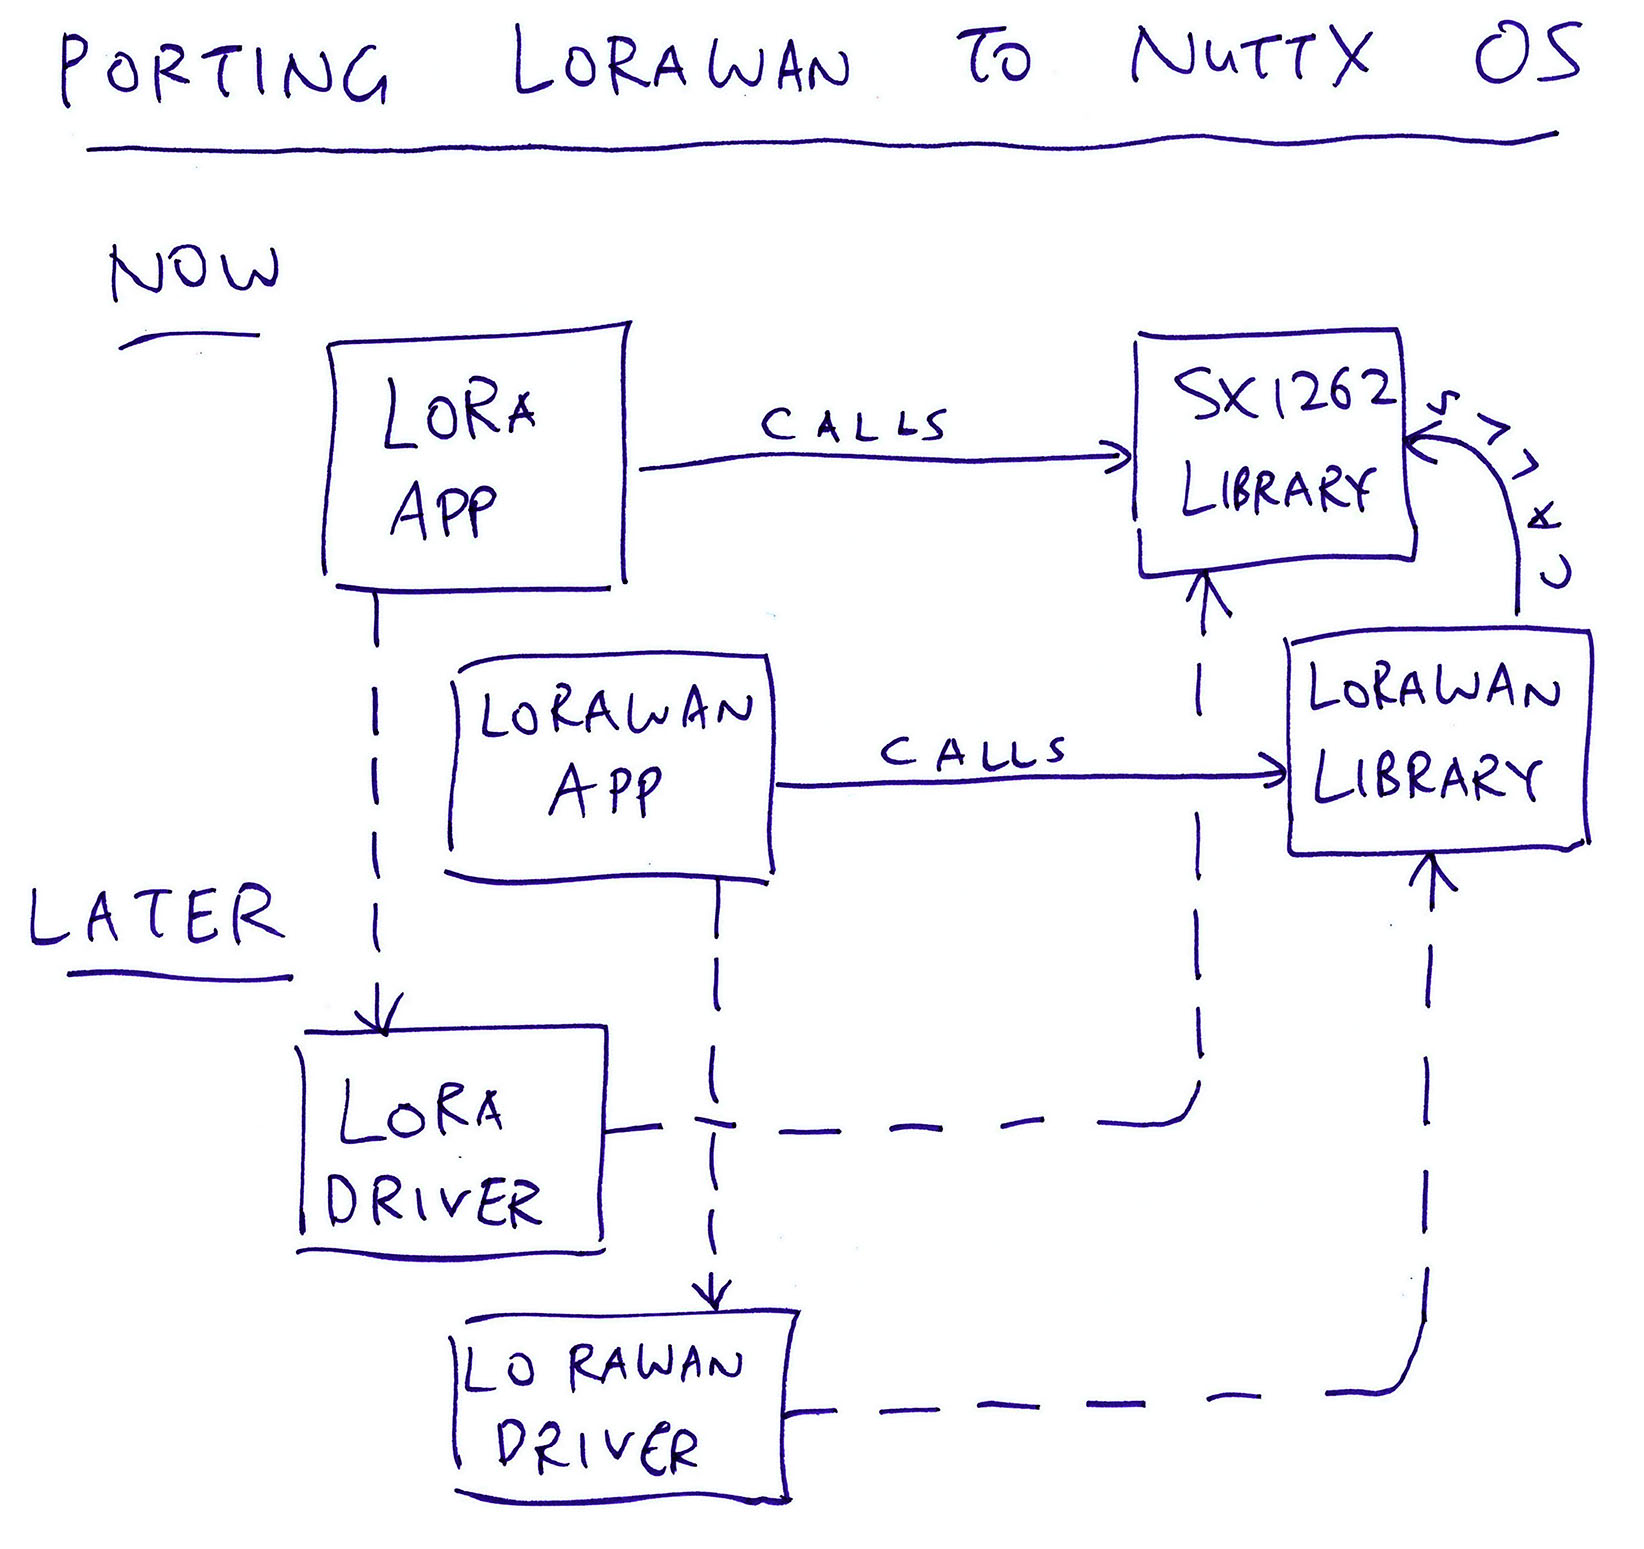 PORTING LORAWAN TO NUTTX OS
NOW
LORA
APP
CALLS
SX1262
LIBRARY
CALLS
LORAWAN
APP
CALLS
LORAWAN
LIBRARY
LATER
LORA
DRIVER
LO RAWAN
DRIVER